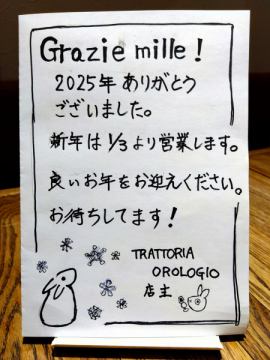 Grazie mille!
2025年 ありがとう
ございました。
新年は 1/3 より営業します。
良いお年をお迎えください。
お待ちしてます!
TRATTORIA
OROLOGIO
店主